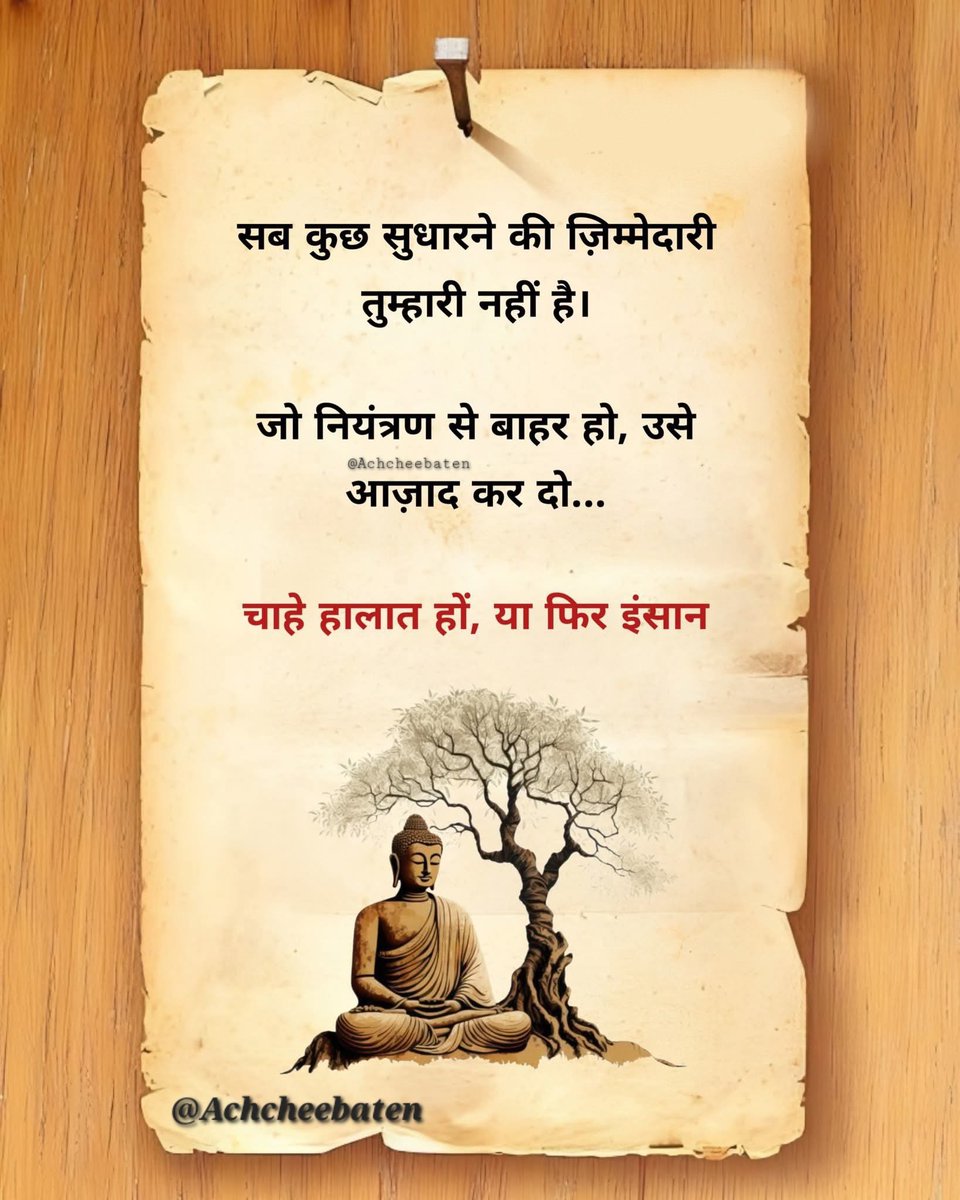 सब कुछ सुधारने की ज़िम्मेदारी
तुम्हारी नहीं है।
जो नियंत्रण से बाहर हो, उसे
@Achcheebaten
आज़ाद कर दो...
चाहे हालात हों, या फिर इंसान
@Achcheebaten